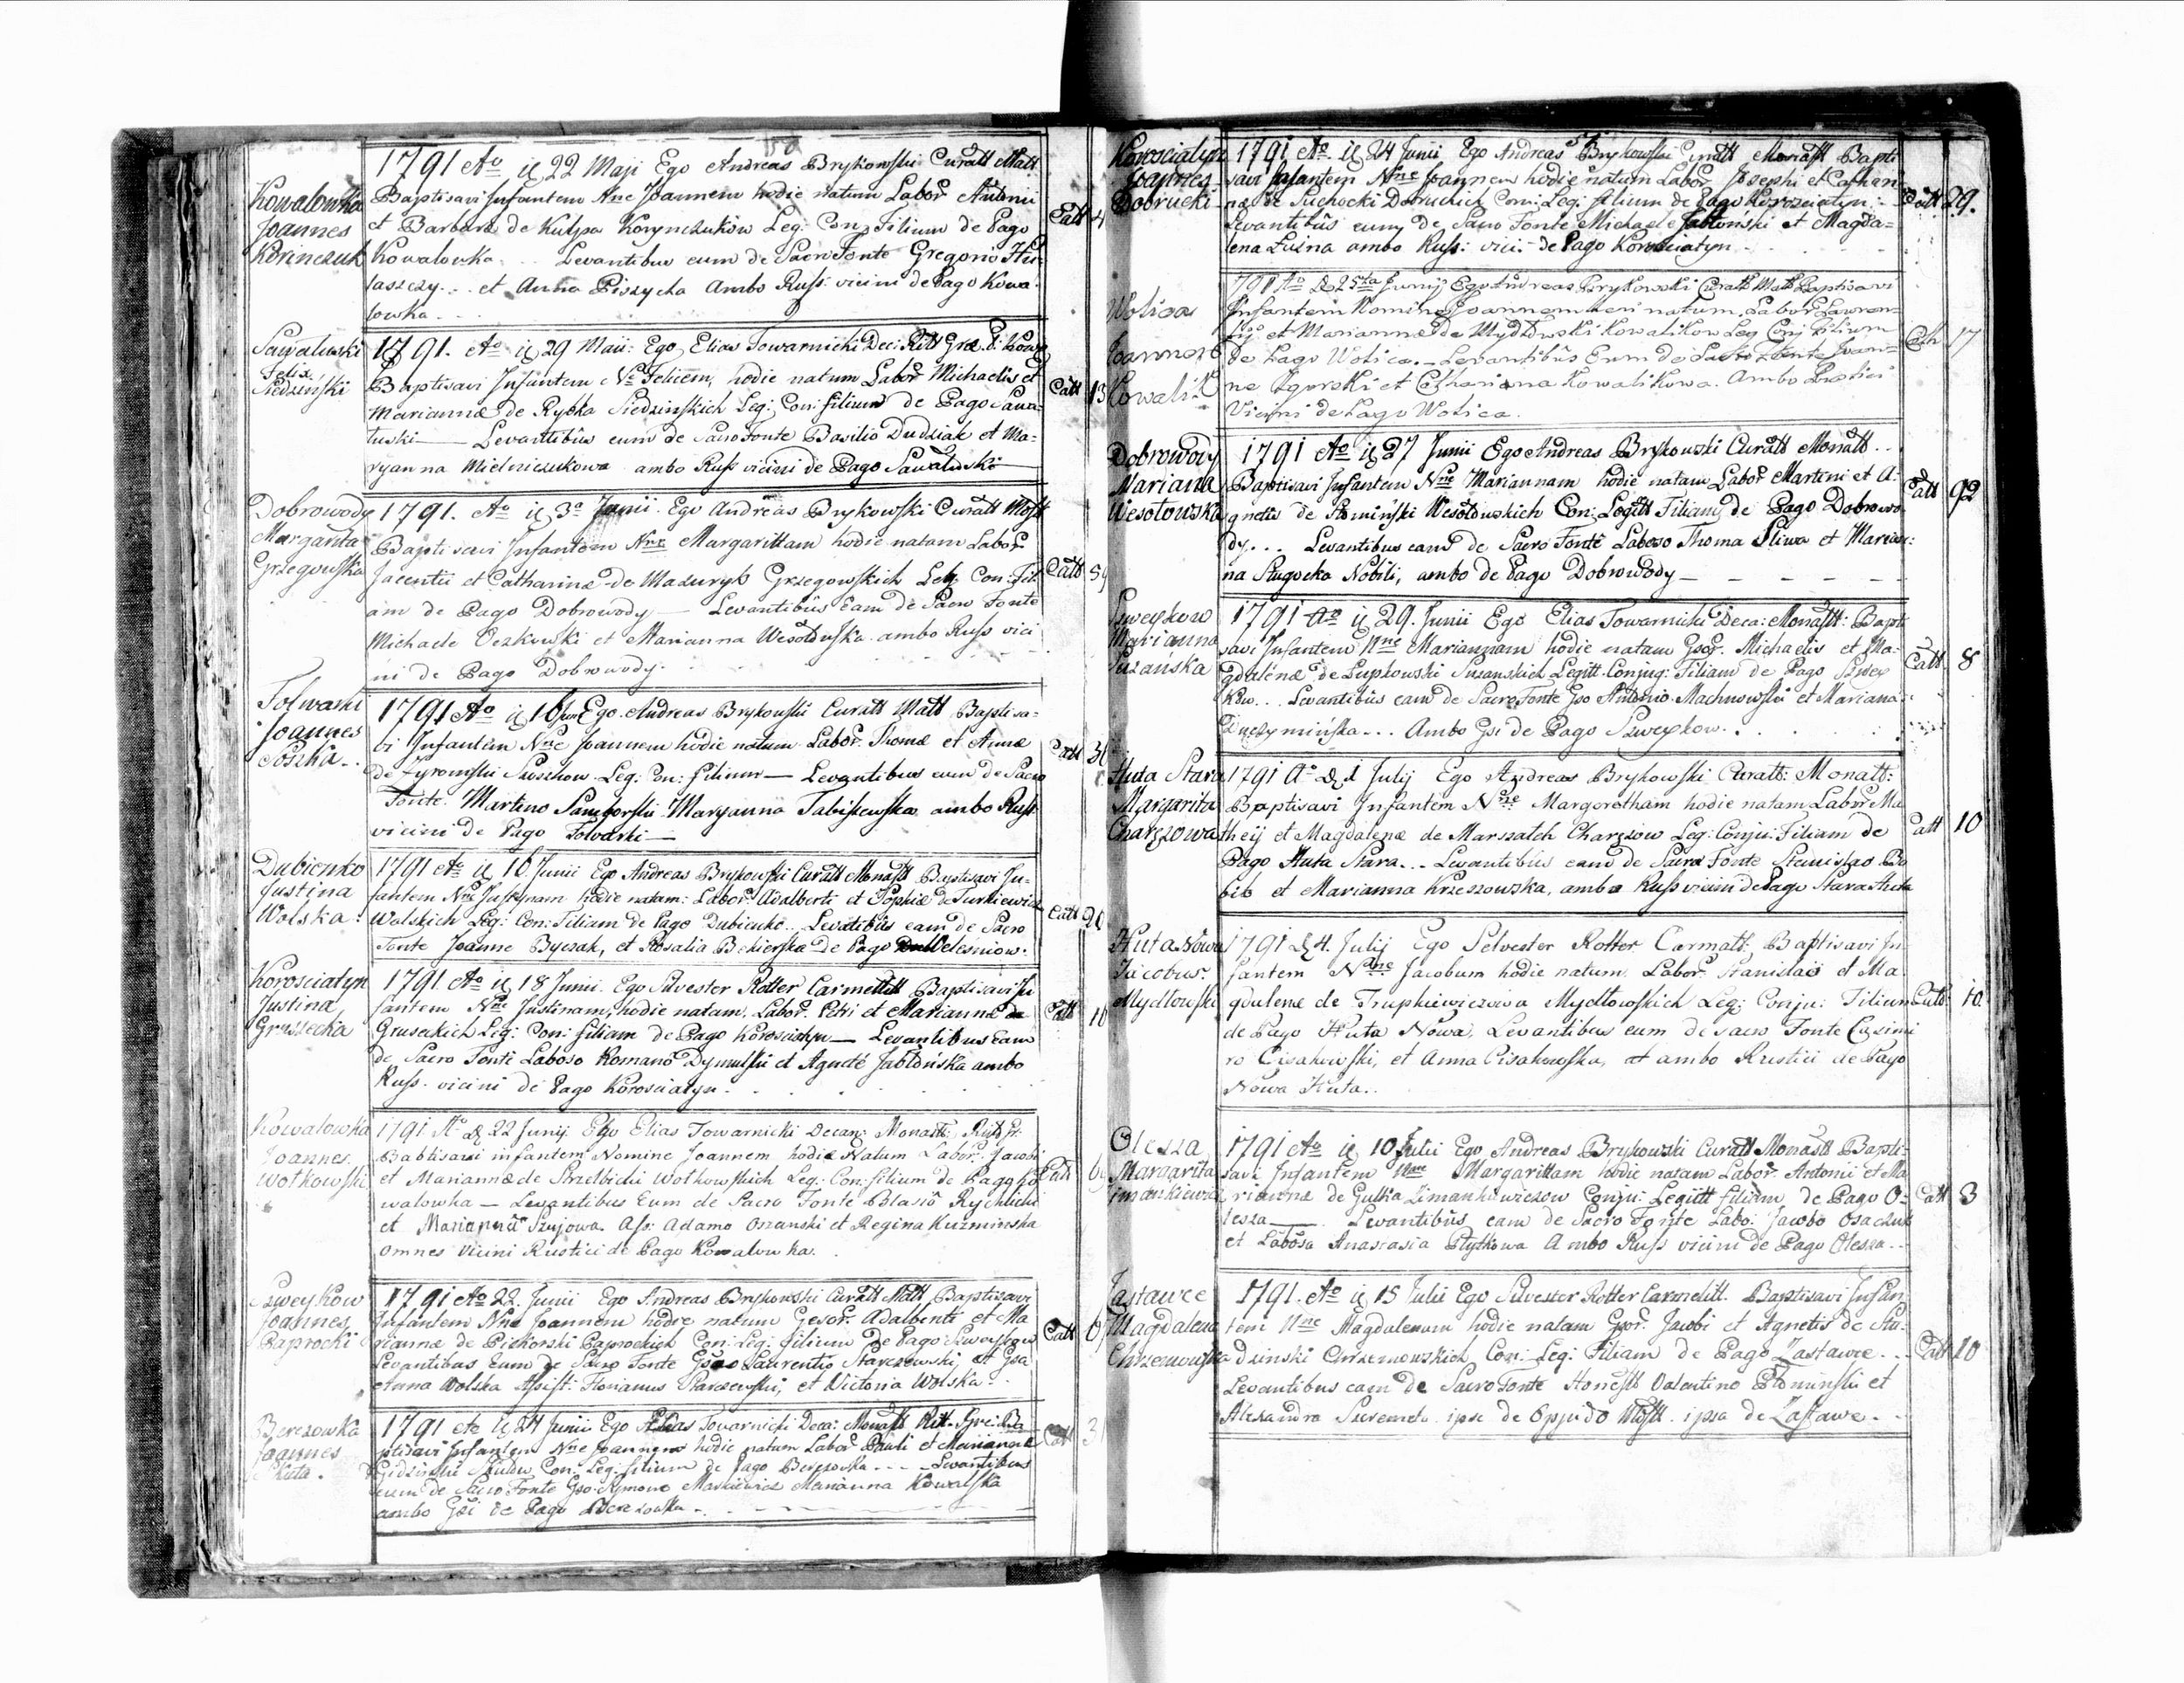 Kowalowka
Joannes
Korinczuk
1791 Ao id 22 Maji Ego Andreas Brykowski Curatt Matt
Baptisavi Infantem Nne Joannem hodie natum Labor Antonii
et Barbara de Kulypa Korynczukow Leg: Con: Filium de Pago
Kowalowka . . Levantibus eum de Sacro Fonte Gregorio
laszczy . . et Anna Piszycha Ambo Russ: vicini de Pago Kowa
lowka . . .
Catt 4
Sawaluski
Felix
Siedzinski
1791. Ao id 29 Maii: Ego Elias Towarnicki Dec:
Baptisavi Infantem Ne Felicem, hodie natum Labor Michaelis et
Mariannæ de Rybka Siedzinskich Leg: Con: filium de Pago Sawa-
luski — Levantibus eum de Sacro Fonte Basilio Dudziak et Ma-
ryanna Mielniczukowa ambo Russ vicini de Pago Sawaluski
Catt 13
Dobrowody
Margarita
Grzegowska
1791. Ao id 3a Junii. Ego Andreas Brykowski Curatt
Baptisavi Infantem Nne Margarittam hodie natam Labor
Jacentii et Catharinæ de Mazuryk Grzegowskich Leg Con: Fili
am de Pago Dobrowody — Levantibus Eam de Sacro Fonte
Michaele Oczkowski et Marianna Wesolowska ambo Russ vici
ni de Pago Dobrowody.
Catt
Folwarki
Joannes
Soszka . .
1791 Ao id 16 Ego Andreas Brykowski Curatt Matt Baptisa-
bi Infantem Nne Joannem hodie natum Labor. Thomæ et Annæ
de Zyromski Soszkow Leg: Con: filium — Levantibus eum de Sacro
Fonte. Martino Samborski Maryanna Tabiszewska ambo Russ
vicini de Pago Folwarki —
Catt
Dubienko
Justina
Wolska
1791 Ao id 16 Junii Ego Andreas Brykowski Curatt Monastt Baptisavi In-
fantem Nne Justynam hodie natam: Labor: Adalberti et Sophiæ de Turkiewicz
Wolskich Leg: Con: Filiam de Pago Dubienko . . Levatibus eam de Sacro
Fonte Joanne Byczak, et Rosalia Bekierska De Pago Welesniow.
Catt 20
Korosciatyn
Justina
Gruszecka
1791 Ao id 18 Junii Ego Silvester Rotter Carmelitt Baptisavi In
fantem Nne Justinam, hodie natam, Labor. Petri et Mariannæ
Gruseckich Leg: Con: filiam de Pago Korosciatyn — Levantibus Eam
de Sacro Fonte Laboso Romano Dymulski et Agnete Jablonska ambo
Russ. vicini de Pago Korosciatyn .
Catt
Kowalowka
Joannes
Wolkowski
1791 Ao id 22 Junij Ego Elias Towarnicki Decan: Monast:
Babtisavi infantem Nomine Joannem hodie Natum Labor: Jacobi
et Mariannæ de Strzelbicki Wolkowskich Leg: Con: filium de Paggo Ko
walowka — Levantibus Eum de Sacro Fonte Blasio Rychlicki
et Marianna Szujowa Ass: Adamo Ozanski et Regina Kuzminska
omnes vicini Rustici de Pago Kowalowka.
Catt
Szweykow
Joannes
Paprocki
1791 Ao 22 Junii Ego Andreas Brykowski Curatt Matt Baptisavi
Infantem Nne Joannem hodie natum Gesor. Adalberti et Ma
riannæ de Piekorski Paprockich Con: Leg: filium De Pago Sweykow
Levantibus Eum de Sacro Fonte Gso Laurentio Starczewski, et Gsa
Anna Wolska Assist: Florianus Starczewski, et Victoria Wolska .
Catt
Berezowka
Joannes
Skuta .
1791 Ao id 24 Junii Ego Elias Towarnicki Deca: Monastt Ritt. Græ: Ba
ptisavi Infantem Nne Joannem hodie natum Labor Pauli et Mariannæ
Skutow Con. Leg: filium de Pago Berezowka . . . Levantibus
eum de Sacro Fonte Gso Symone Markiewicz Marianna Kowalska
ambo Gsi de Pago Berezowka . .
Catt
Korosciatyn
Joannes
Dobrucki
1791 Ao. id 24 Junii Ego Andreas Brykowski Curatt Monastt Bapti
savi Infantem Nne Joannem hodie natum Labor Josephi et Cathari
næ de Suchocki Dobruckich Con: Leg: filium de Pago Korosciatyn .
Levantibus eum de Sacro Fonte Michaele Jablonski et Magda=
lena Luina ambo Russ: vici: de Pago Korosciatyn .
Catt 29.
Wolica
Joannes
Kowalik
791 Ao id 25ta Junij Ego Andreas Brykowski Curatt Matt Baptisavi
Infantem Nomine Joannem heri natum, Labor Lauren-
tij et Mariannæ de Mydlowski Kowalikow Leg Conj Filium
de Pago Wolica. — Levantibus Eum de Sacro Fonte Joan=
ne Zgorski et Catharina Kowalikowa. Ambo Rustici
Vicini de Pago Wolica.
Cath 17
Dobrowody
Mariana
Wesolowska
1791 Ao id 27 Junii Ego Andreas Brykowski Curatt Monatt . .
Baptisavi Infantem Nne Mariannam hodie natam Labor Martini et A-
gnetis de Slominski Wesolowskich Con: Legitt Filiam de Pago Dobrowo
dy . . . Levantibus eam de Sacro Fonte Laboso Thoma Sliwa et Marian:
na Slugocka Nobili, ambo de Pago Dobrowody —
Catt 92
Szweykow
Marianna
Suzanska
1791 Ao id 29. Junii Ego Elias Towarnicki Deca: Monastt: Bapti
savi Infantem Nne Mariannam hodie natam Gsor. Michaelis et Ma-
gdalenæ de Lupkowski Suzanskich Legitt. Conjug: Filiam de Pago Szwey
kow . . . Levantibus eam de Sacro Fonte Gso Antonio Machnowski et Mariana
. . . Ambo Gsi de Pago Szweykow . .
Catt 8
Huta Stara
Margarita
Charęzowa
1791 Ao id 1 Julij Ego Andreas Brykowski Curatt: Monatt:
Baptisavi Infantem Nne Margoretham hodie natam Labor Ma
theij et Magdalenæ de Marszałek Charęzow Leg: Conju: Filiam de
Pago Huta Stara . . . Levantibus eam de Sacro Fonte Stanislao Bo
bik et Marianna Krzeszowska, ambo Russ vicini de Pago Stara Huta
Catt 10
Huta Nowa
Jacobus
Mydlowski
1791 id 4. Julij Ego Selvester Rotter Carmatt. Baptisavi In
fantem Nne Jacobum hodie natum. Labor. Stanislai et Ma
gdalenæ de Trupkiewiczowa Mydlowskich Leg: Conju: Filium
de Pago Huta Nowa, Levantibus eum de sacro Fonte Casimi
ro Cisakowski, et Anna Cisakowska, et ambo Rustici de Pago
Nowa Huta . .
Catt 10
Olesza
Margarita
1791 Ao id 10 Julii Ego Andreas Brykowski Curatt Monastt Bapti-
savi Infantem Nne Margarittam hodie natam Labor. Antonii et Ma
riannæ de Gulka Zimankiewiczow Conju: Legitt filiam de Pago O=
lesza — Levantibus eam de Sacro Fonte Labo: Jacobo Osaczuk
et Labosa Anastasia Plytkowa Ambo Russ vicini de Pago Olesza . .
Catt 3
Zastawce
Magdalena
Chrzemowska
1791. Ao id 15 Julii Ego Silvester Rotter Carmelitt. Baptisavi Infan
tem Nne Magdalenam hodie natam Gsor. Jacobi et Agnetis de Stu-
dzinski Chrzemowskich Con: Leg: Filiam de Pago Zastawce . .
Levantibus eam de Sacro Fonte Honestt Valentino et
Alexandra Szeremeta ipse de Oppido Mostt. ipsa de Zastawce . .
Catt 10